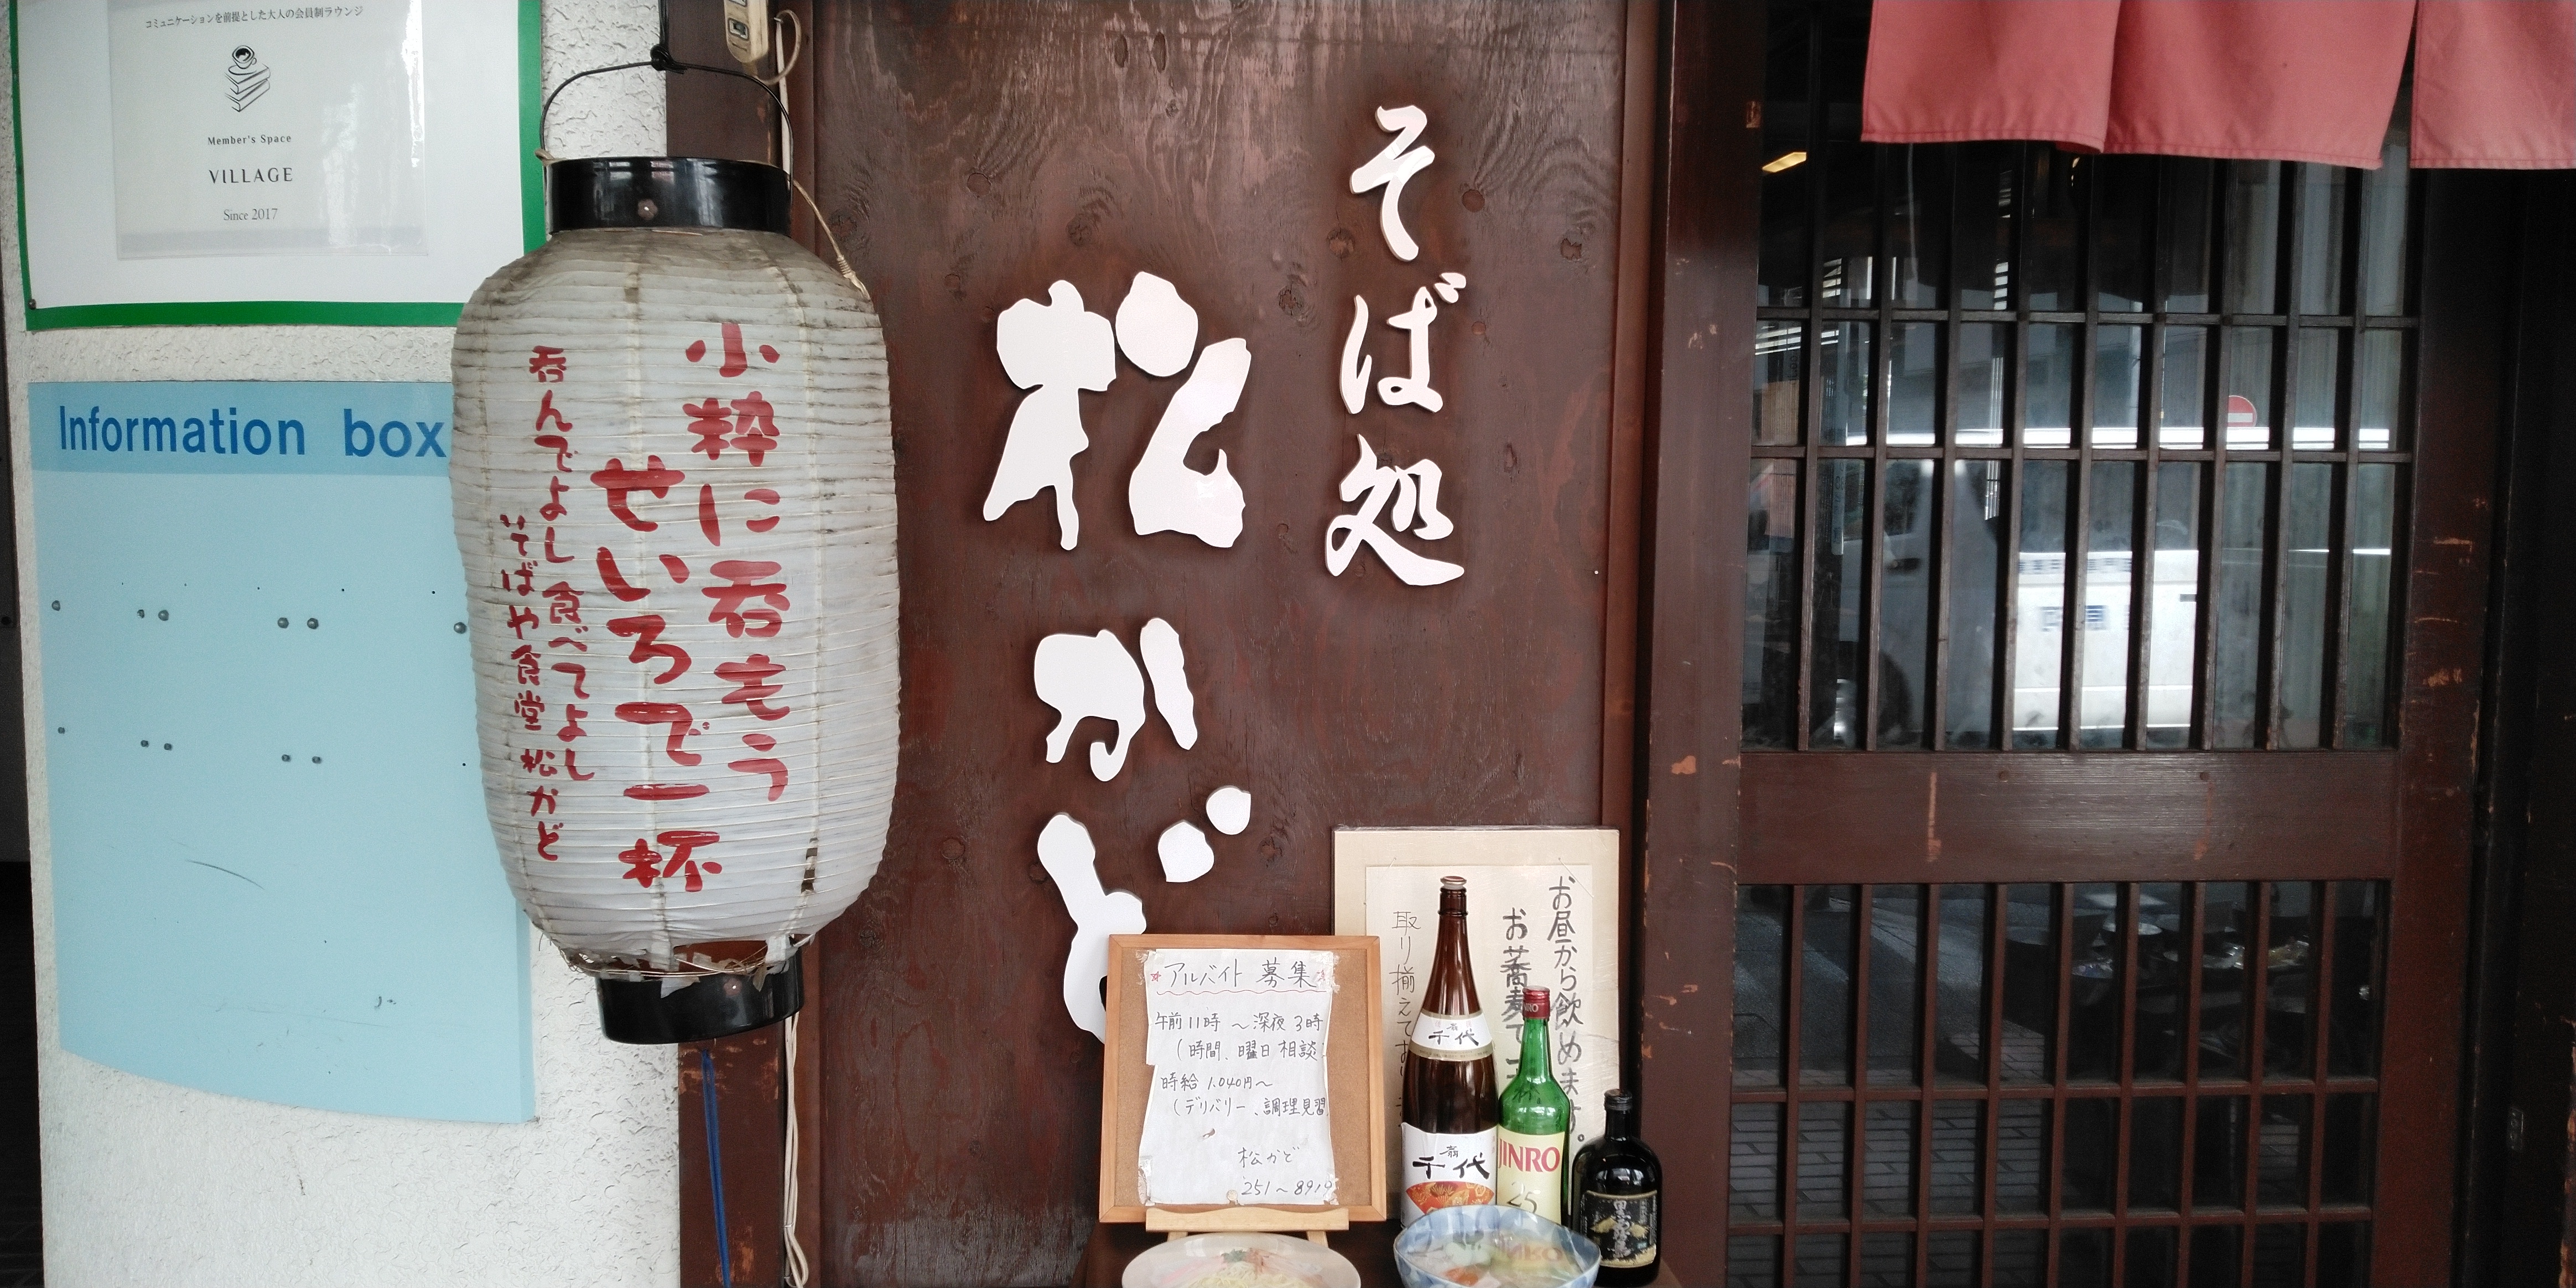 コミュニケーションを前提とした大人の会員制ラウンジ
Member's Space
VILLAGE
Since 2017
Information box
小粋に呑もう
せいろで一杯
呑んでよし食べてよし
そばや食堂 松かど
そば処
松かど
お昼から飲めます。
お蕎麦で
取り揃えてお
アルバイト募集
午前11時 〜深夜3時
(時間、曜日相談
時給 1,040円〜
(デリバリー、調理見習
松かど
251〜8919
千代
千代
JINRO
25